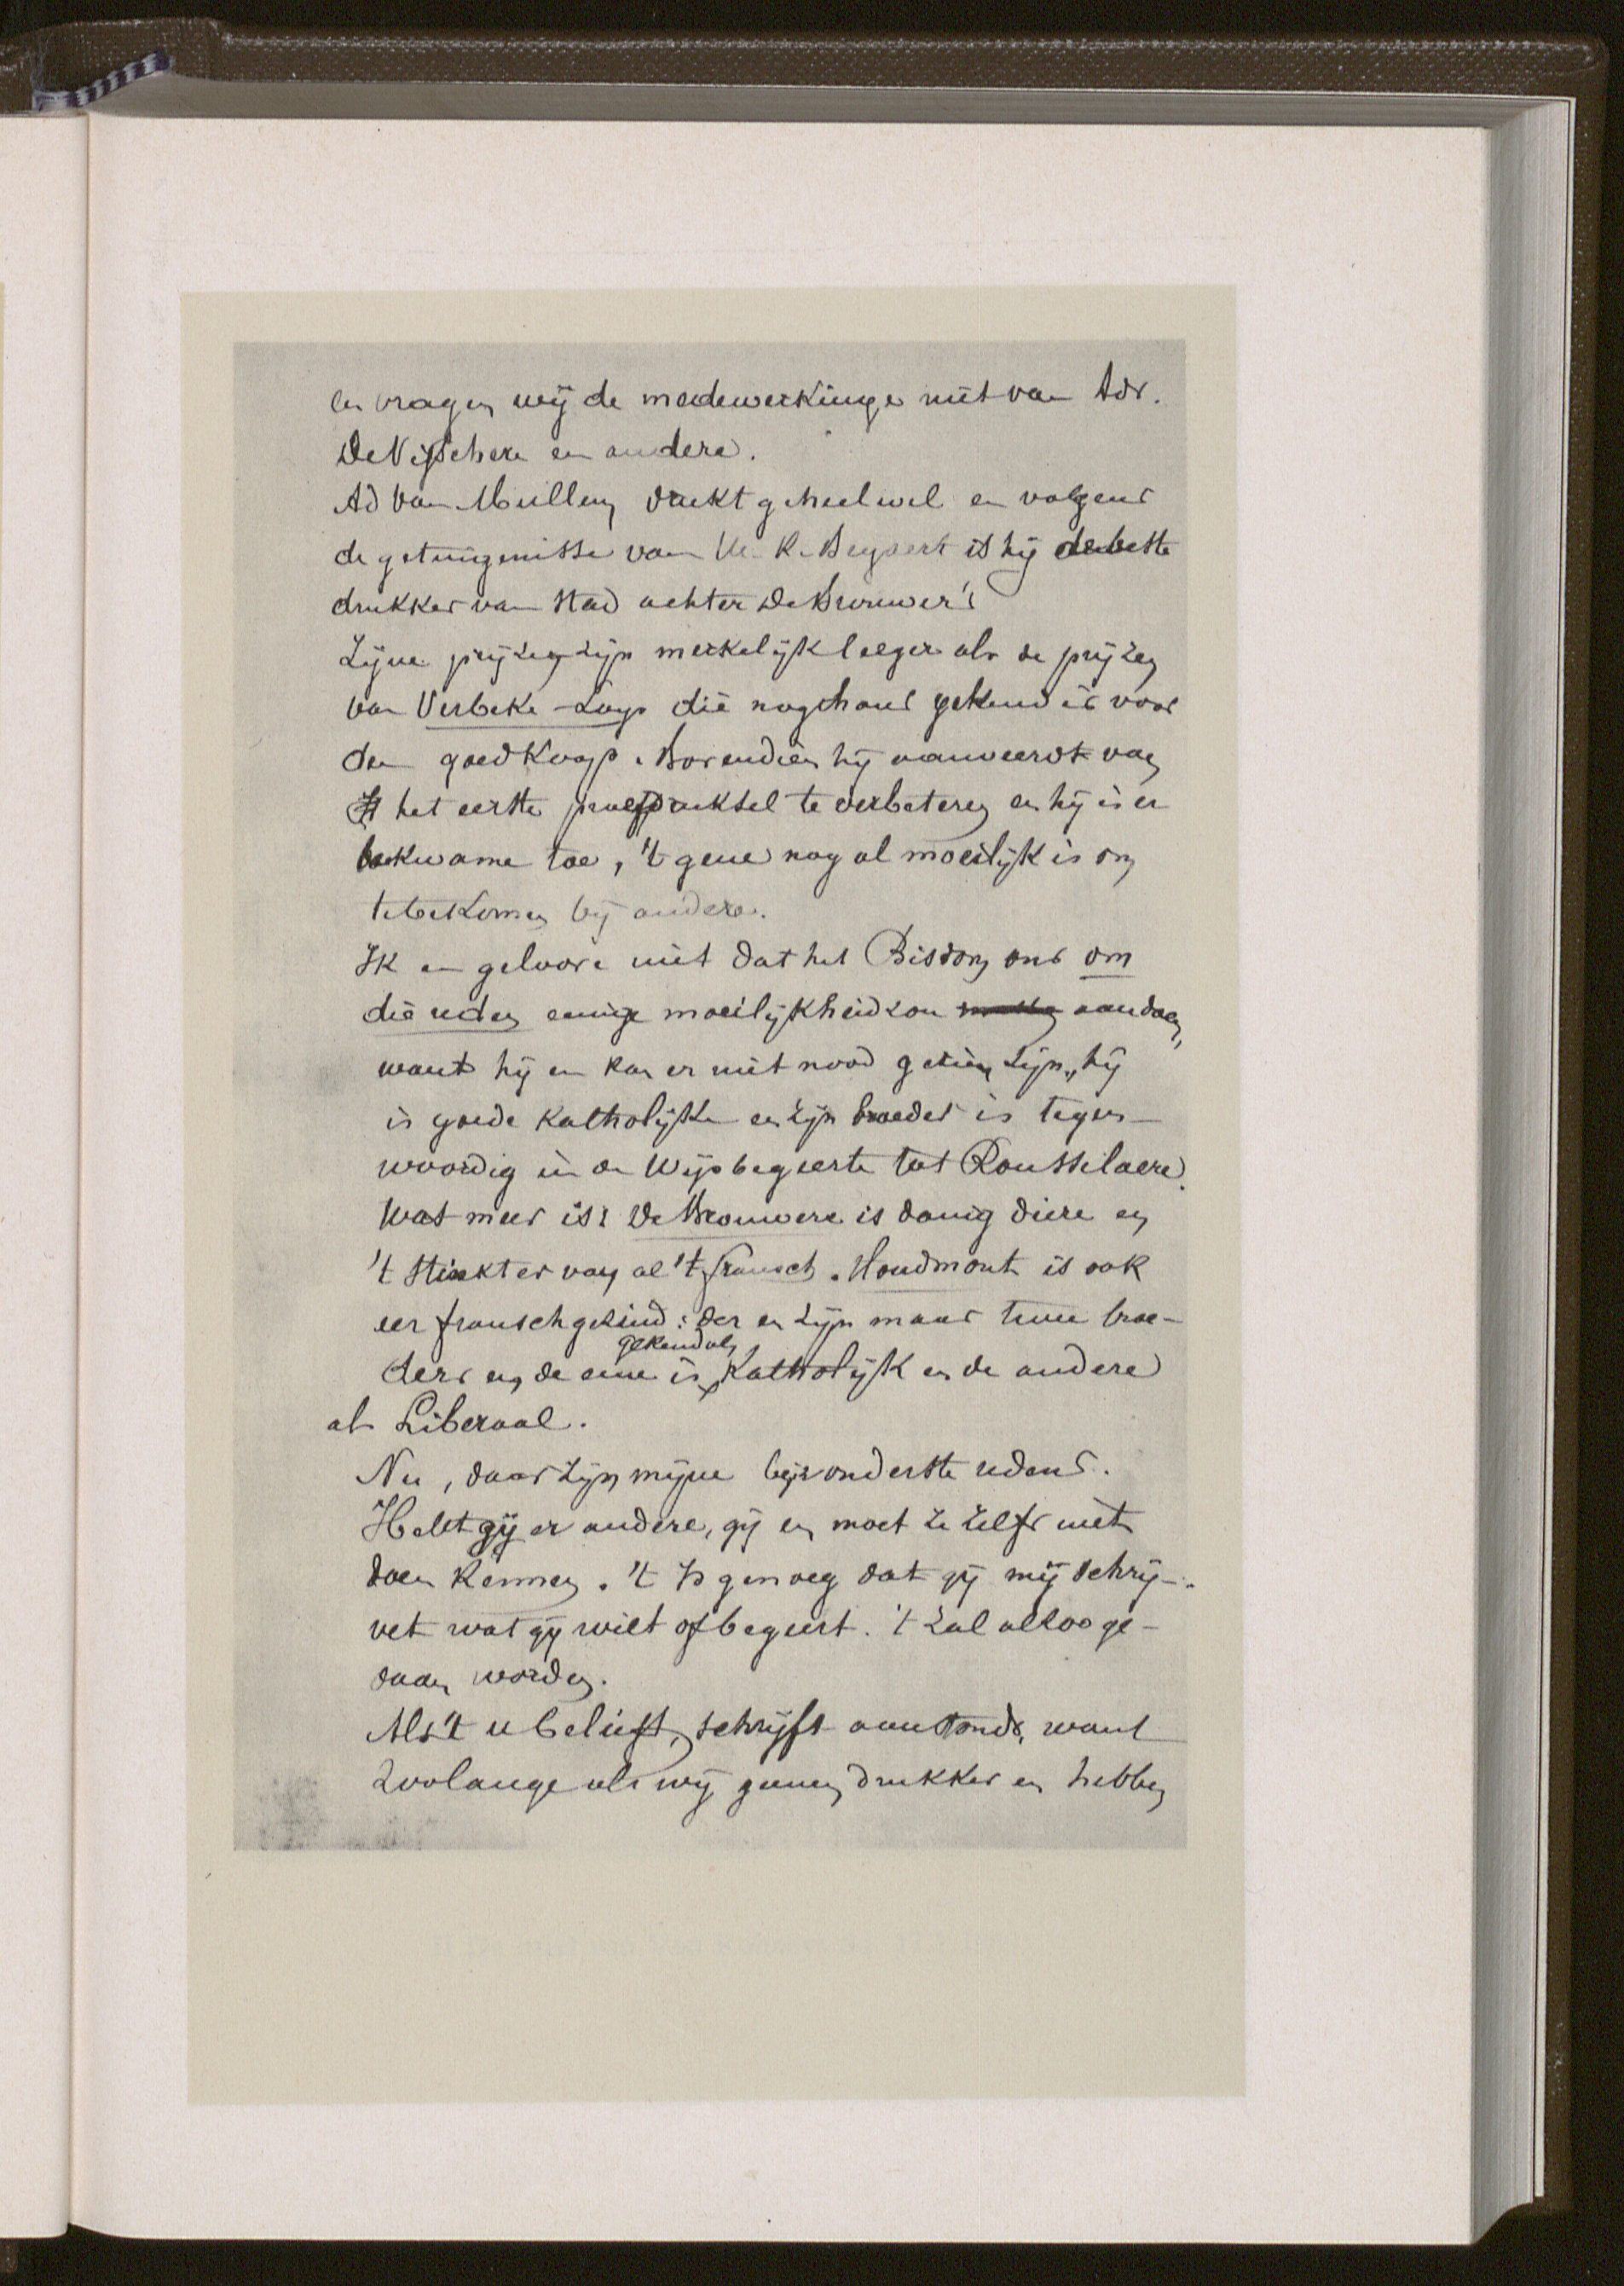 en vragen wij de medewerkinge niet van Adr.
De Visschere en andere.
Ad Van Mullem drukt geheel wel en volgens
de getuigenisse van K. Beyaert is hij de beste
drukker van stad achter De Brouwer's
Zijne prijzen zijn merkelijk leeger als de prijzen
van Verbeke-Loys die nogthans gekend is voor
den goedkoop. Bovendien hij aanveerdt van
het eerste proefdruksel te verbeteren en hij is er
bekwame toe, 't gene nog al moeilijk is om
te bekomen bij andere.
Ik en geloove niet dat het Bisdom ons om
die reden eenige moeilijkheid zou aandoen,
want hij en kan er niet nood gezien zijn, hij
is goede katholijke en zijn broeder is tegen-
woordig in de Wijsbegeerte tot Rousselaere.
Wat meer is: De Brouwere is danig diere en
't stinkt er van al 't fransch. Houdmont is ook
eer franschgezind: der en zijn maar twee broe-
ders en de eene is gekend als Katholijk en de andere
als Liberaal.
Nu, daar zijn mijne bijzonderste redens.
Hebt gij er andere, gij en moet ze zelfs niet
doen kennen. 't Is genoeg dat gij mij schrij-
vet wat gij wilt of begeert. 't Zal alzoo ge-
daan worden.
Als 't u belieft, schrijft aanstonds, want
Zoolange als wij geenen drukker en hebben